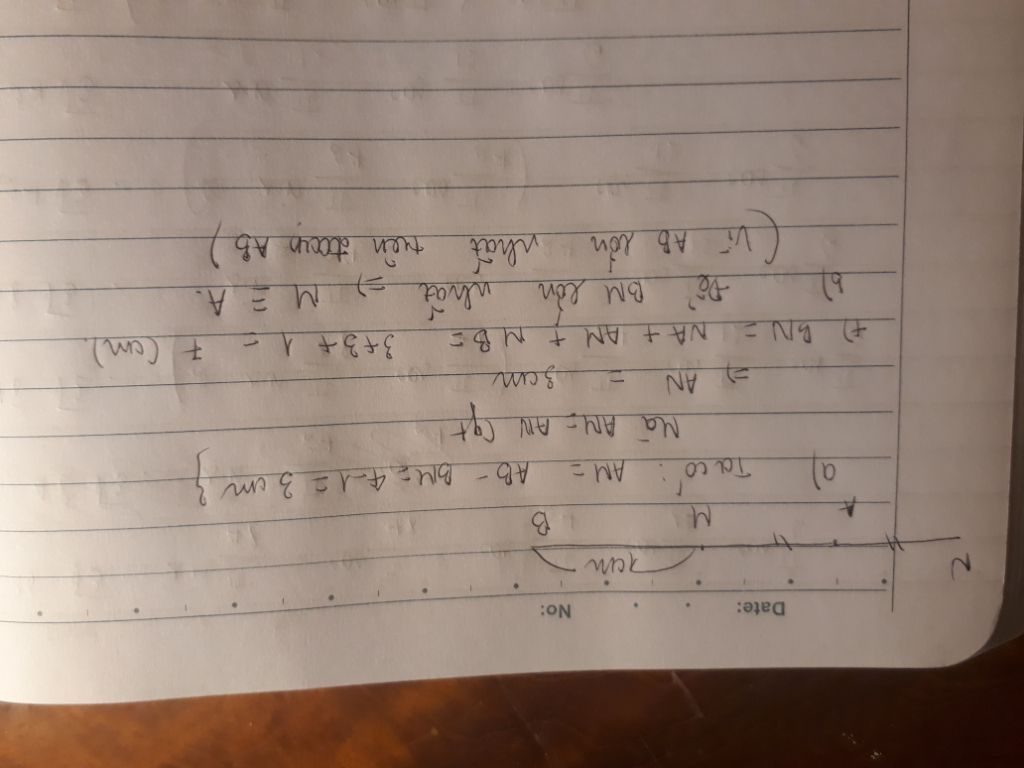 Date: No:
1cm
N A M B
a) Ta có: AM = AB - BM = 4-1 = 3 cm }
Mà AM = AN (gt
=) AN = 3cm
+) BN = NA + AM + MB = 3+3+1 = 7 (cm).
b) Để BM lớn nhất =) M ≡ A.
(Vì AB lớn nhất trên đoạn AB)